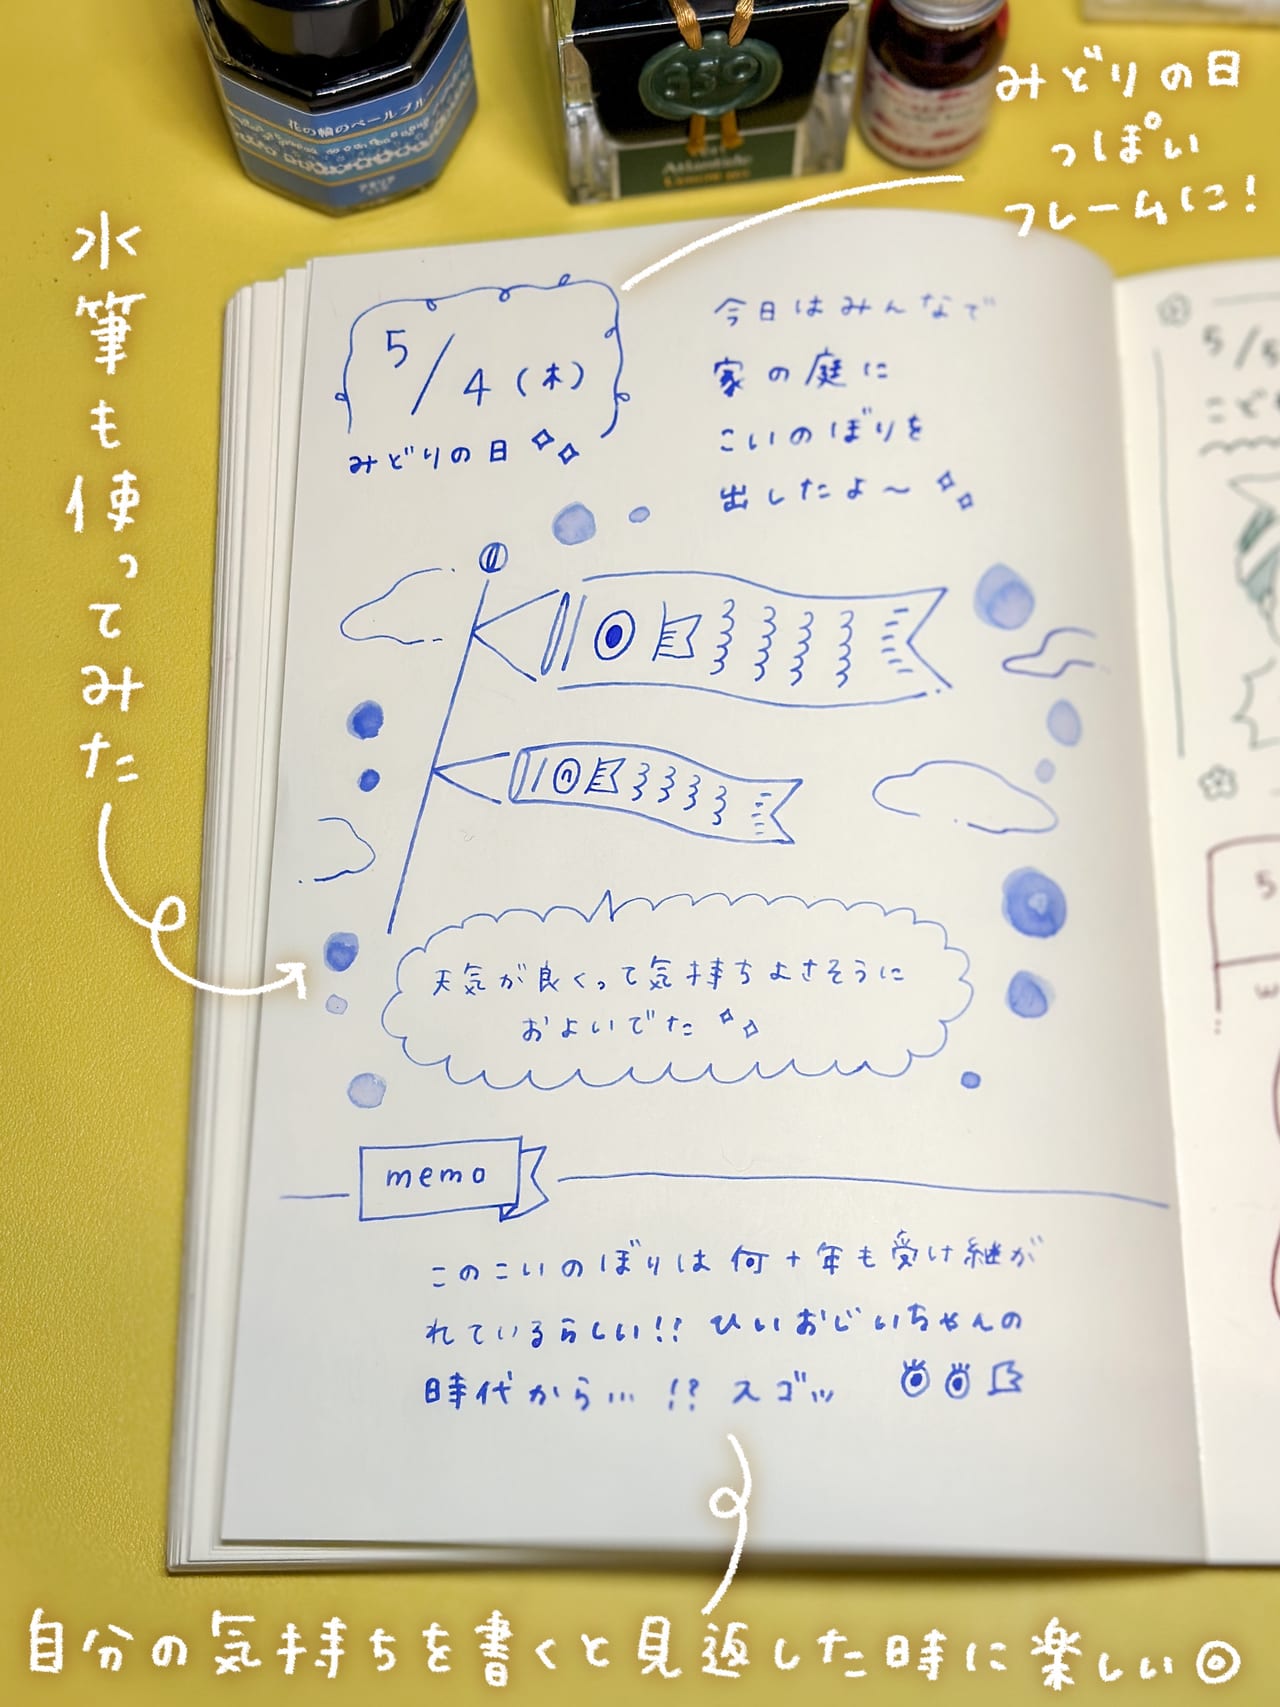 花の輪のペールブルー
Vert
Atlantide
みどりの日
っぽい
フレームに!
水筆も使ってみた
5/4(木)
みどりの日
今日はみんなで
家の庭に
こいのぼりを
出したよ〜
天気が良くって気持ちよさそうに
およいでた
memo
このこいのぼりは何十年も受け継が
れているらしい!! ひいおじいちゃんの
時代から… !? スゴッ
5/5
こど
5
w
自分の気持ちを書くと見返した時に楽しい◎